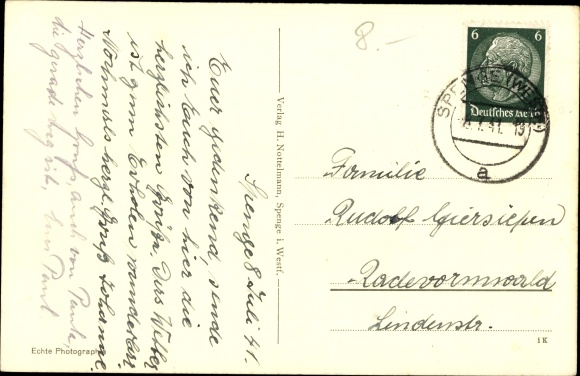 8.-
6 6
Deutsches Reich
SPENGE (WESTF)
7.41. 13
a
Spenge 8 Juli 41.
Euer gedenkend, sende
ich Euch von hier die
herzlichsten Grüße. Das Wetter
ist zum Erholen wunderbar.
Nochmals herzl. Gruß Johanne.
Herzlichen Gruß, auch von Tante,
die gerade
Verlag H. Nottelmann, Spenge i. Westf.
Familie
Rudolf Giersiepen
Radevormwald
Lindenstr.
Echte Photographie
1K